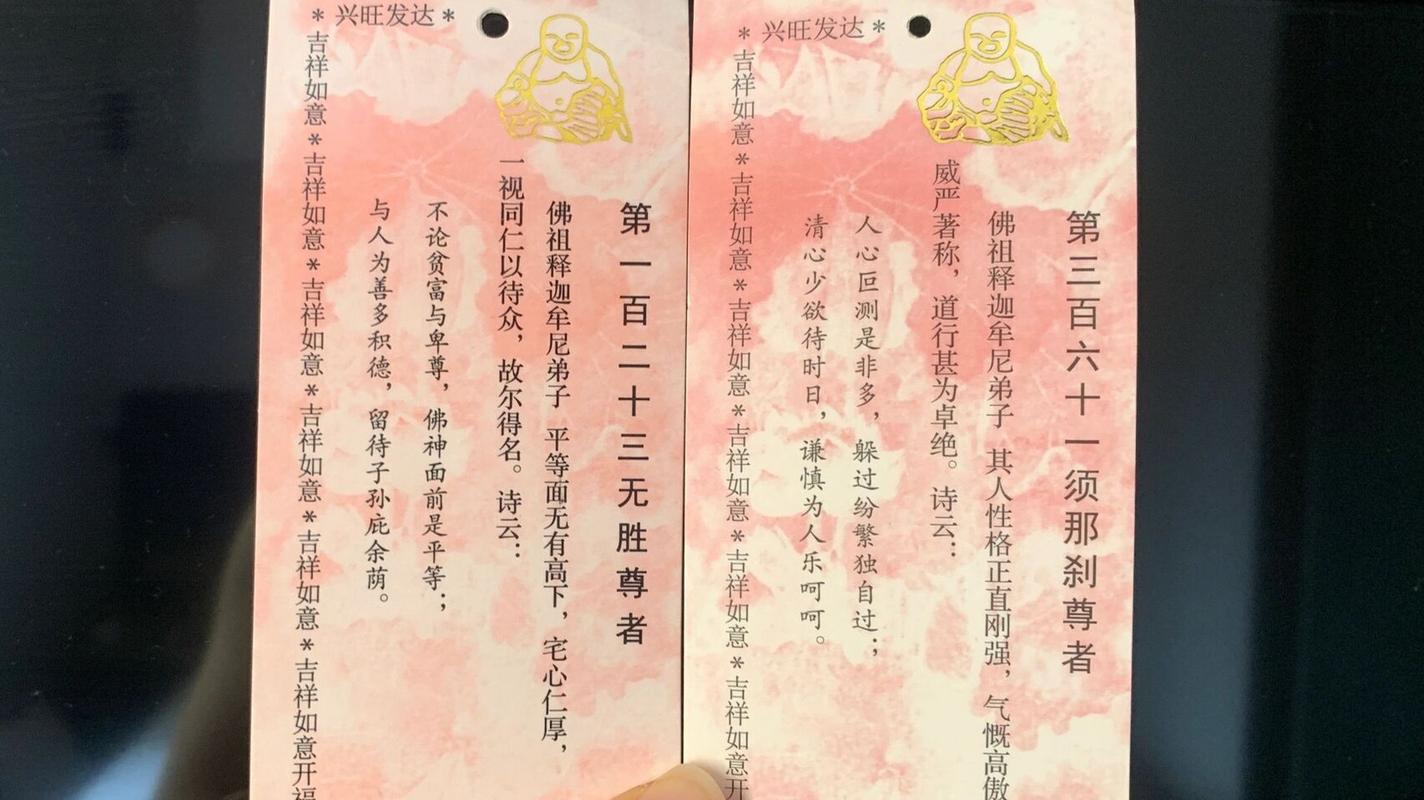 第一百二十三无胜尊者
佛祖释迦牟尼弟子 平等面无有高下，宅心仁厚，
一视同仁以待众，故尔得名。诗云：
不论贫富与卑尊，佛神面前是平等；
与人为善多积德，留待子孙庇余荫。
*兴旺发达*
吉祥如意*吉祥如意*吉祥如意*吉祥如意*吉祥如意*吉祥如意开福
第三百六十一须那刹尊者
佛祖释迦牟尼弟子 其人性格正直刚强，气慨高傲
威严著称，道行甚为卓绝。诗云：
人心叵测是非多，躲过纷繁独自过；
清心少欲待时日，谦慎为人乐呵呵。
*兴旺发达*
吉祥如意*吉祥如意*吉祥如意*吉祥如意*吉祥如意*吉祥如意开